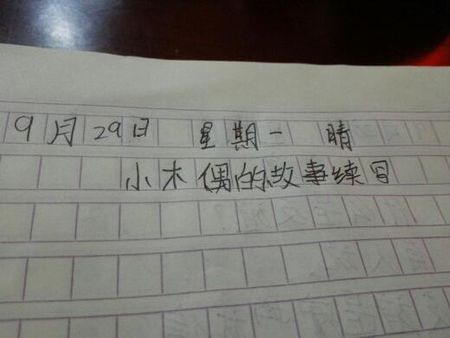 9月29日 星期一 晴
小木偶的故事续写